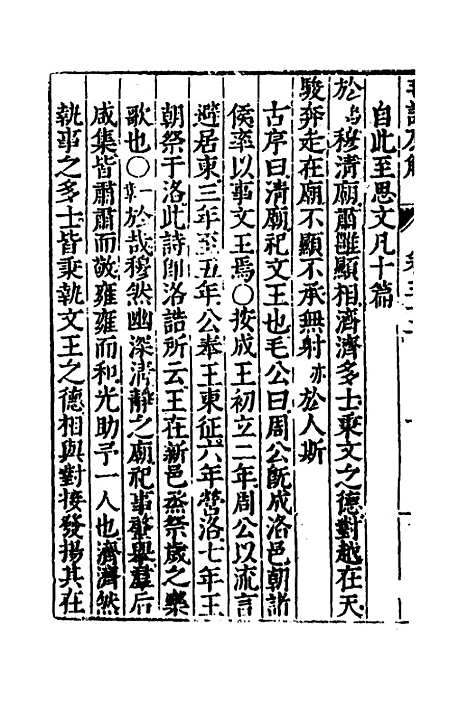 自此至思文凡十篇
於烏穆清廟肅雝顯相濟濟多士秉文之德對越在天
駿奔走在廟不顯不承無射亦於人斯
古序曰清廟祀文王也毛公曰周公旣成洛邑朝諸
侯率以事文王焉○按成王初立二年周公以流言
避居東三年至五年公奉王東征六年營洛七年王
朝祭于洛此詩卽洛誥所云王在新邑烝祭歲之樂
歌也○一章於哉穆然幽深清靜之廟祀事肇舉羣后
咸集皆肅肅而敬雍雍而和光助予一人也濟濟然
執事之多士皆秉執文王之德相與對接發揚其在